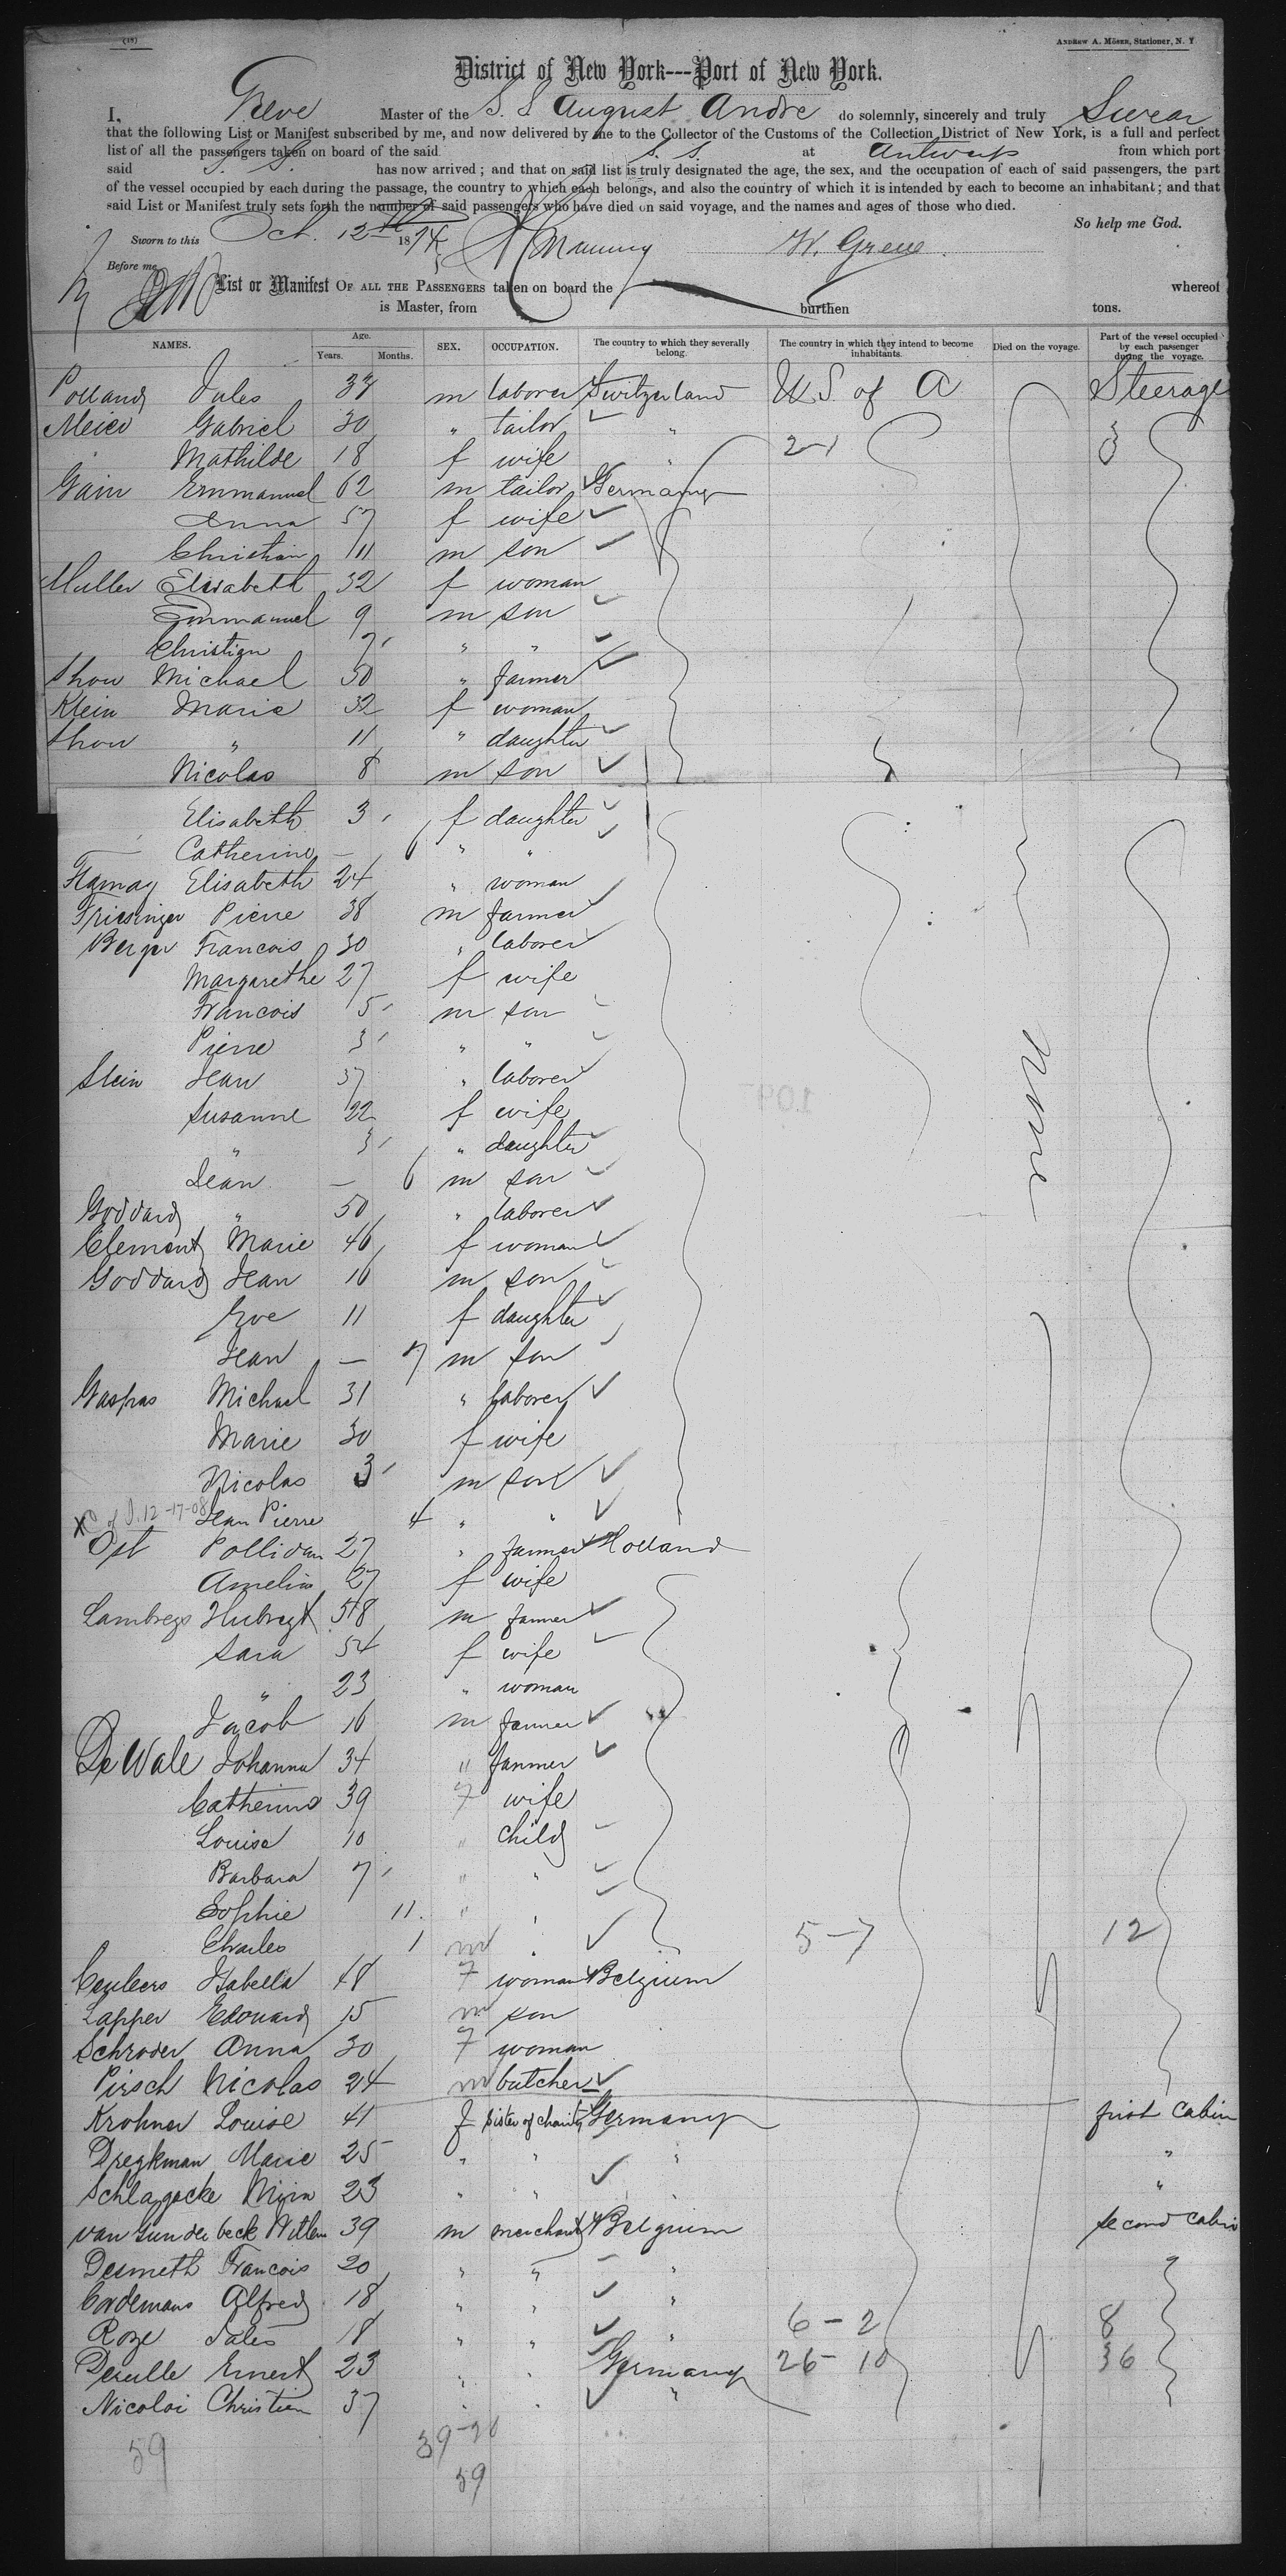 (18)
ANDREW A. MÖSER, Stationer, N. Y
District of New York---Port of New York.
I, Greve Master of the S. S August Andre do solemnly, sincerely and truly Swear
that the following List or Manifest subscribed by me, and now delivered by me to the Collector of the Customs of the Collection District of New York, is a full and perfect
list of all the passengers taken on board of the said S. S. at Antwerp from which port
said S. S. has now arrived; and that on said list is truly designated the age, the sex, and the occupation of each of said passengers, the part
of the vessel occupied by each during the passage, the country to which each belongs, and also the country of which it is intended by each to become an inhabitant; and that
said List or Manifest truly sets forth the number of said passengers who have died on said voyage, and the names and ages of those who died.
So help me God.
Sworn to this Oct. 12th 1874 Manning W. Greve
Before me
List or Manifest OF ALL THE PASSENGERS taken on board the whereof
is Master, from burthen tons.
NAMES. Age. Years. Months. SEX. OCCUPATION. The country to which they severally belong. The country in which they intend to become inhabitants. Died on the voyage. Part of the vessel occupied by each passenger during the voyage.
Jules 37 m laborer Switzerland U.S. of A Steerage
Meier Gabriel 30 " tailor "
" Mathilde 18 f wife " 2-1 3
Gain Emmanuel 62 m tailor Germany
Anna 57 f wife
Christian 11 m son
Muller Elisabeth 32 f woman
Emmanuel 9 m son
Christian 7 " "
Thow Michael 50 " farmer
Klein Marie 32 f woman
Thow " 11 " daughter
Nicolas 8 m son
Elisabeth 3 f daughter
Catherine — 6 " "
Flamay Elisabeth 24 " woman
Friesinger Pierre 38 m farmer
Berger Francois 30 " laborer
Margarethe 27 f wife
Francois 5 m son
Pierre 3 " "
Stein Jean 37 " laborer
Susanne 22 f wife
" 3 " daughter
Jean — 6 m son
Goddard " 50 " laborer
Clement Marie 46 f woman
Goddard Jean 16 m son
Eve 11 f daughter
Jean — 7 m son
None
Gaspas Michael 31 " laborer
Marie 30 f wife
Nicolas 3 m son
X C of I. 12-17-08 Jean Pierre 4 " "
Ost 27 " farmer Holland
Amelia 27 f wife
Lambregs Hubregt 58 m farmer
Sara 54 f wife
" 23 " woman
Jacob 16 m farmer
De Wale Johanna 34 " farmer
Catherina 39 f wife
Louise 10 " child
Barbara 7 " "
Sophie 11. " "
Charles 1 m " 5-7 12
Isabella 48 f woman Belgium
Lapper Edouard 15 m son
Schroder Anna 30 f woman
Pirsch Nicolas 24 m butcher
Krohner Louise 41 f Sister of charity Germany first Cabin
Dregkman Marie 25 " " " "
23 " " " "
Willem 39 m merchant Belgium second Cabin
Desmeth Francois 20 " " "
Cordemans Alfred 18 " " "
Roze Jules 18 " " " 6-2 8
Ernest 23 " " Germany 26-10 36
Nicolai Christian 37 " " "
59 39-20
59